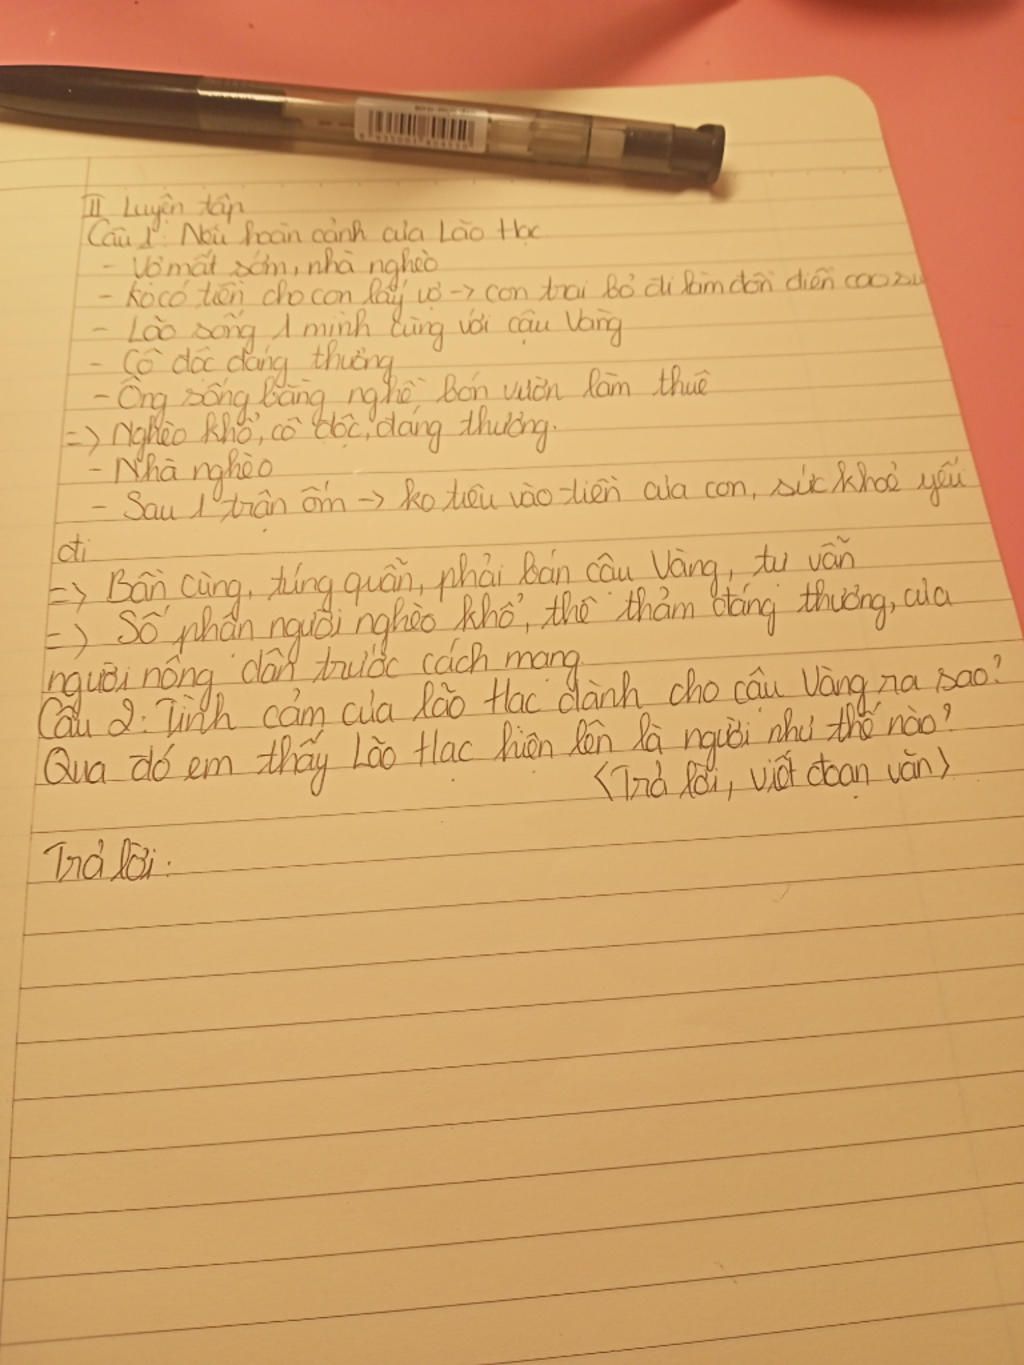 II Luyện tập
Câu 1: Nêu hoàn cảnh của Lão Hạc
- Vợ mất sớm, nhà nghèo
- Ko có tiền cho con lấy vợ -> con trai bỏ đi làm đồn điền cao su
- Lão sống 1 mình cùng với cậu Vàng
- Cô độc đáng thương
- Ông sống bằng nghề bón vườn làm thuê
=> Nghèo khổ, cô độc, đáng thương.
- Nhà nghèo
- Sau 1 trận ốm -> ko tiêu vào tiền của con, sức khoẻ yếu
đi
=> Bần cùng, túng quẫn, phải bán cậu Vàng, tự vẫn
=> Số phận người nghèo khổ, thê thảm đáng thương, của
người nông dân trước cách mạng
Câu 2: Tình cảm của lão Hạc dành cho cậu Vàng ra sao?
Qua đó em thấy Lão Hạc hiện lên là người như thế nào?
<Trả lời, viết đoạn văn>
Trả lời: